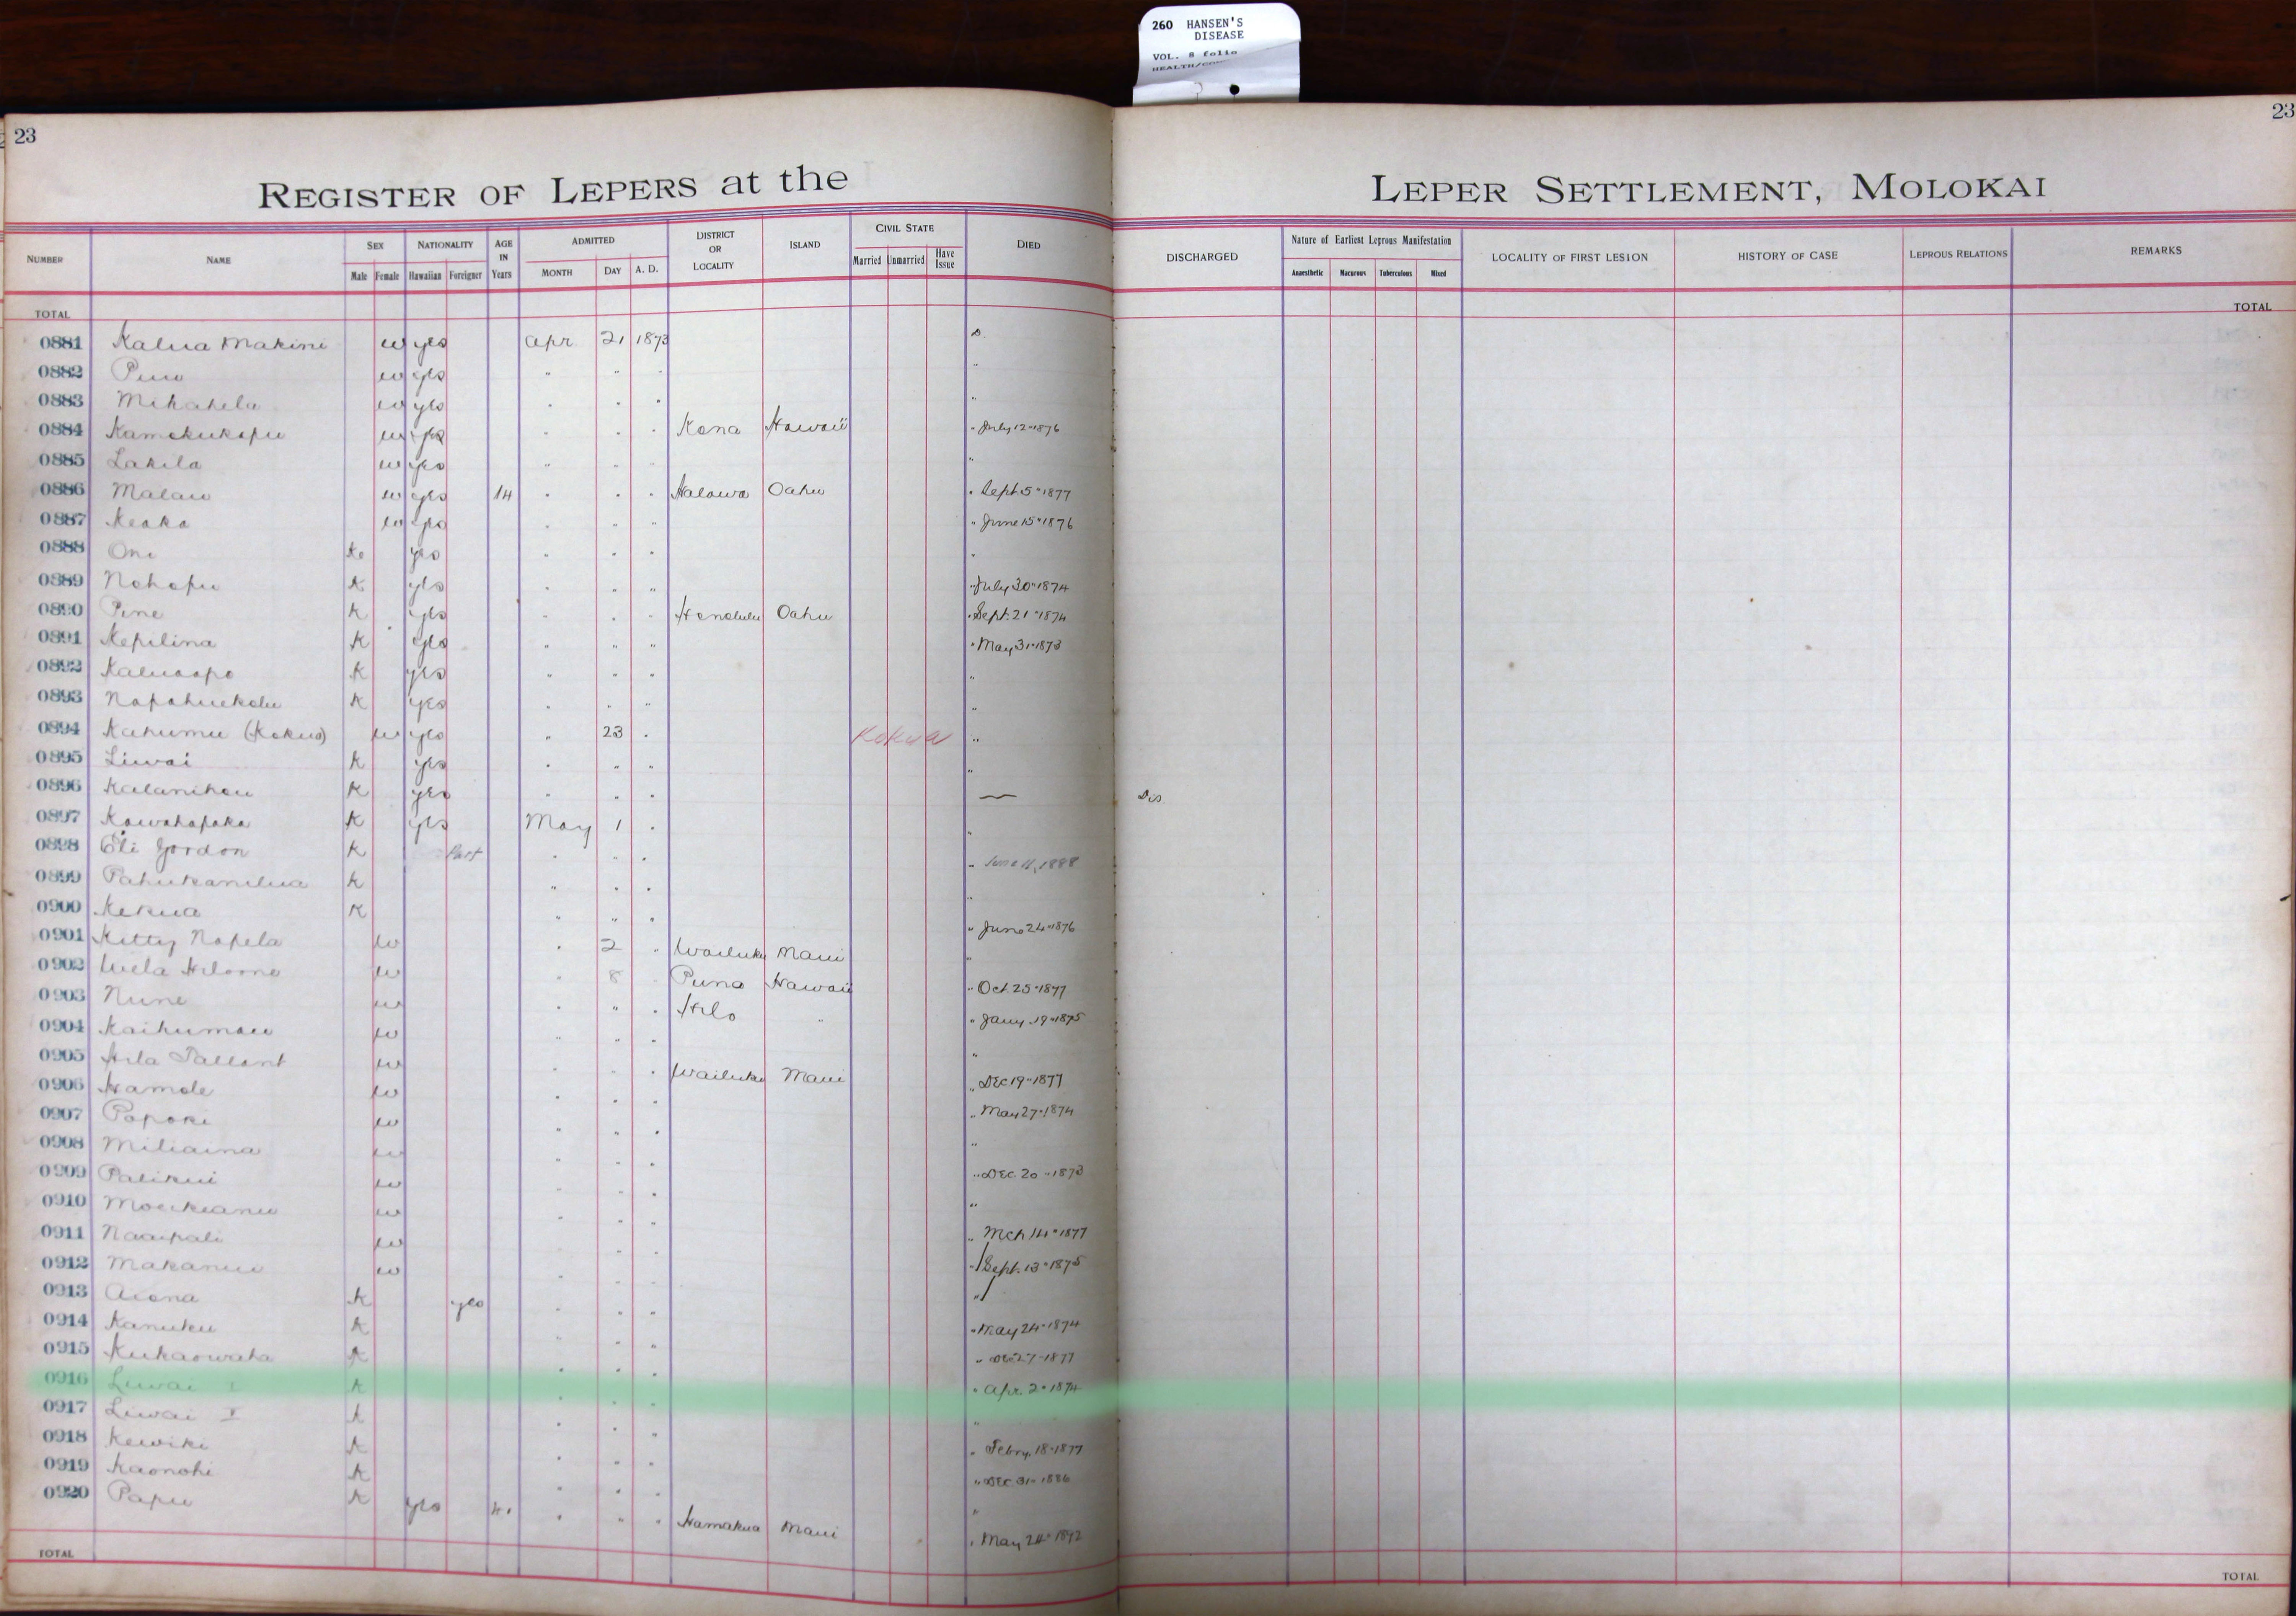 260 HANSEN'S
DISEASE
VOL. 8 folio
23
23
REGISTER OF LEPERS at the LEPER SETTLEMENT, MOLOKAI
NUMBER NAME SEX NATIONALITY AGE IN Years ADMITTED DISTRICT OR LOCALITY ISLAND CIVIL STATE DIED DISCHARGED Nature of Earliest Leprous Manifestation LOCALITY OF FIRST LESION HISTORY OF CASE LEPROUS RELATIONS REMARKS
Male Female Hawaiian Foreigner MONTH DAY A. D. Married Unmarried Have Issue Anaesthetic Macurous Tuberculous Mixed
TOTAL TOTAL
0881 Kalua Makini w yes Apr 21 1873 D.
0882 w yes " " " "
0883 Mikahela w yes " " " "
0884 Kamokukapu w yes " " " Kona Hawaii " July 12 " 1876
0885 Lakila w yes " " " "
0886 Malau w yes 14 " " " Halawa Oahu " Sept. 5 " 1877
0887 Keaka w yes " " " " June 15 " 1876
0888 Oni K yes " " " "
0889 Nohopu K yes " " " " July 30 " 1874
0890 Pine K yes " " " Honolulu Oahu " Sept. 21 " 1874
0891 Kepilina K yes " " " " May 31 " 1873
0892 K yes " " " "
0893 Napahuekolu K yes " " " "
0894 Kahumu (Kokua) w yes " 23 " Kokua "
0895 Liwai K yes " " " "
0896 Kalanihou K yes " " " — Dis
0897 Kawahapaka K yes May 1 " "
0898 Eli Gordon K Part " " " " June 11, 1888
0899 Pahukanilua K " " " "
0900 Kekua K " " " " June 24 " 1876
0901 Kitty Napela w " 2 " Wailuku Maui "
0902 w " 8 " Puna Hawaii " Oct. 25 " 1877
0903 Nune w " " " Hilo " " Jany. 19 " 1875
0904 Kaihumau w " " " "
0905 Hila Tallant w " " " Wailuku Maui " Dec 19 " 1877
0906 Hamole w " " " " May 27 " 1874
0907 Popoki w " " " "
0908 Miliaina w " " " " Dec. 20 " 1873
0909 Palikui w " " " "
0910 Moeikeanu w " " " " Mch 14 " 1877
0911 Naaipali w " " " " Sept. 13 " 1875
0912 Makanui w " " " "
0913 Aiona K yes " " " " May 24 " 1874
0914 Kanuku K " " " " Dec 27 " 1877
0915 Kukaowaha K " " " " Apr. 2 " 1874
0916 Liwai I K " " " "
0917 Liwai K " " " " Febry. 18 " 1877
0918 Kewiki K " " " " Dec. 31 " 1886
0919 Kaonohi K " " " "
0920 Papu K yes " " " Hamakua Maui " May 24 " 1892
TOTAL TOTAL